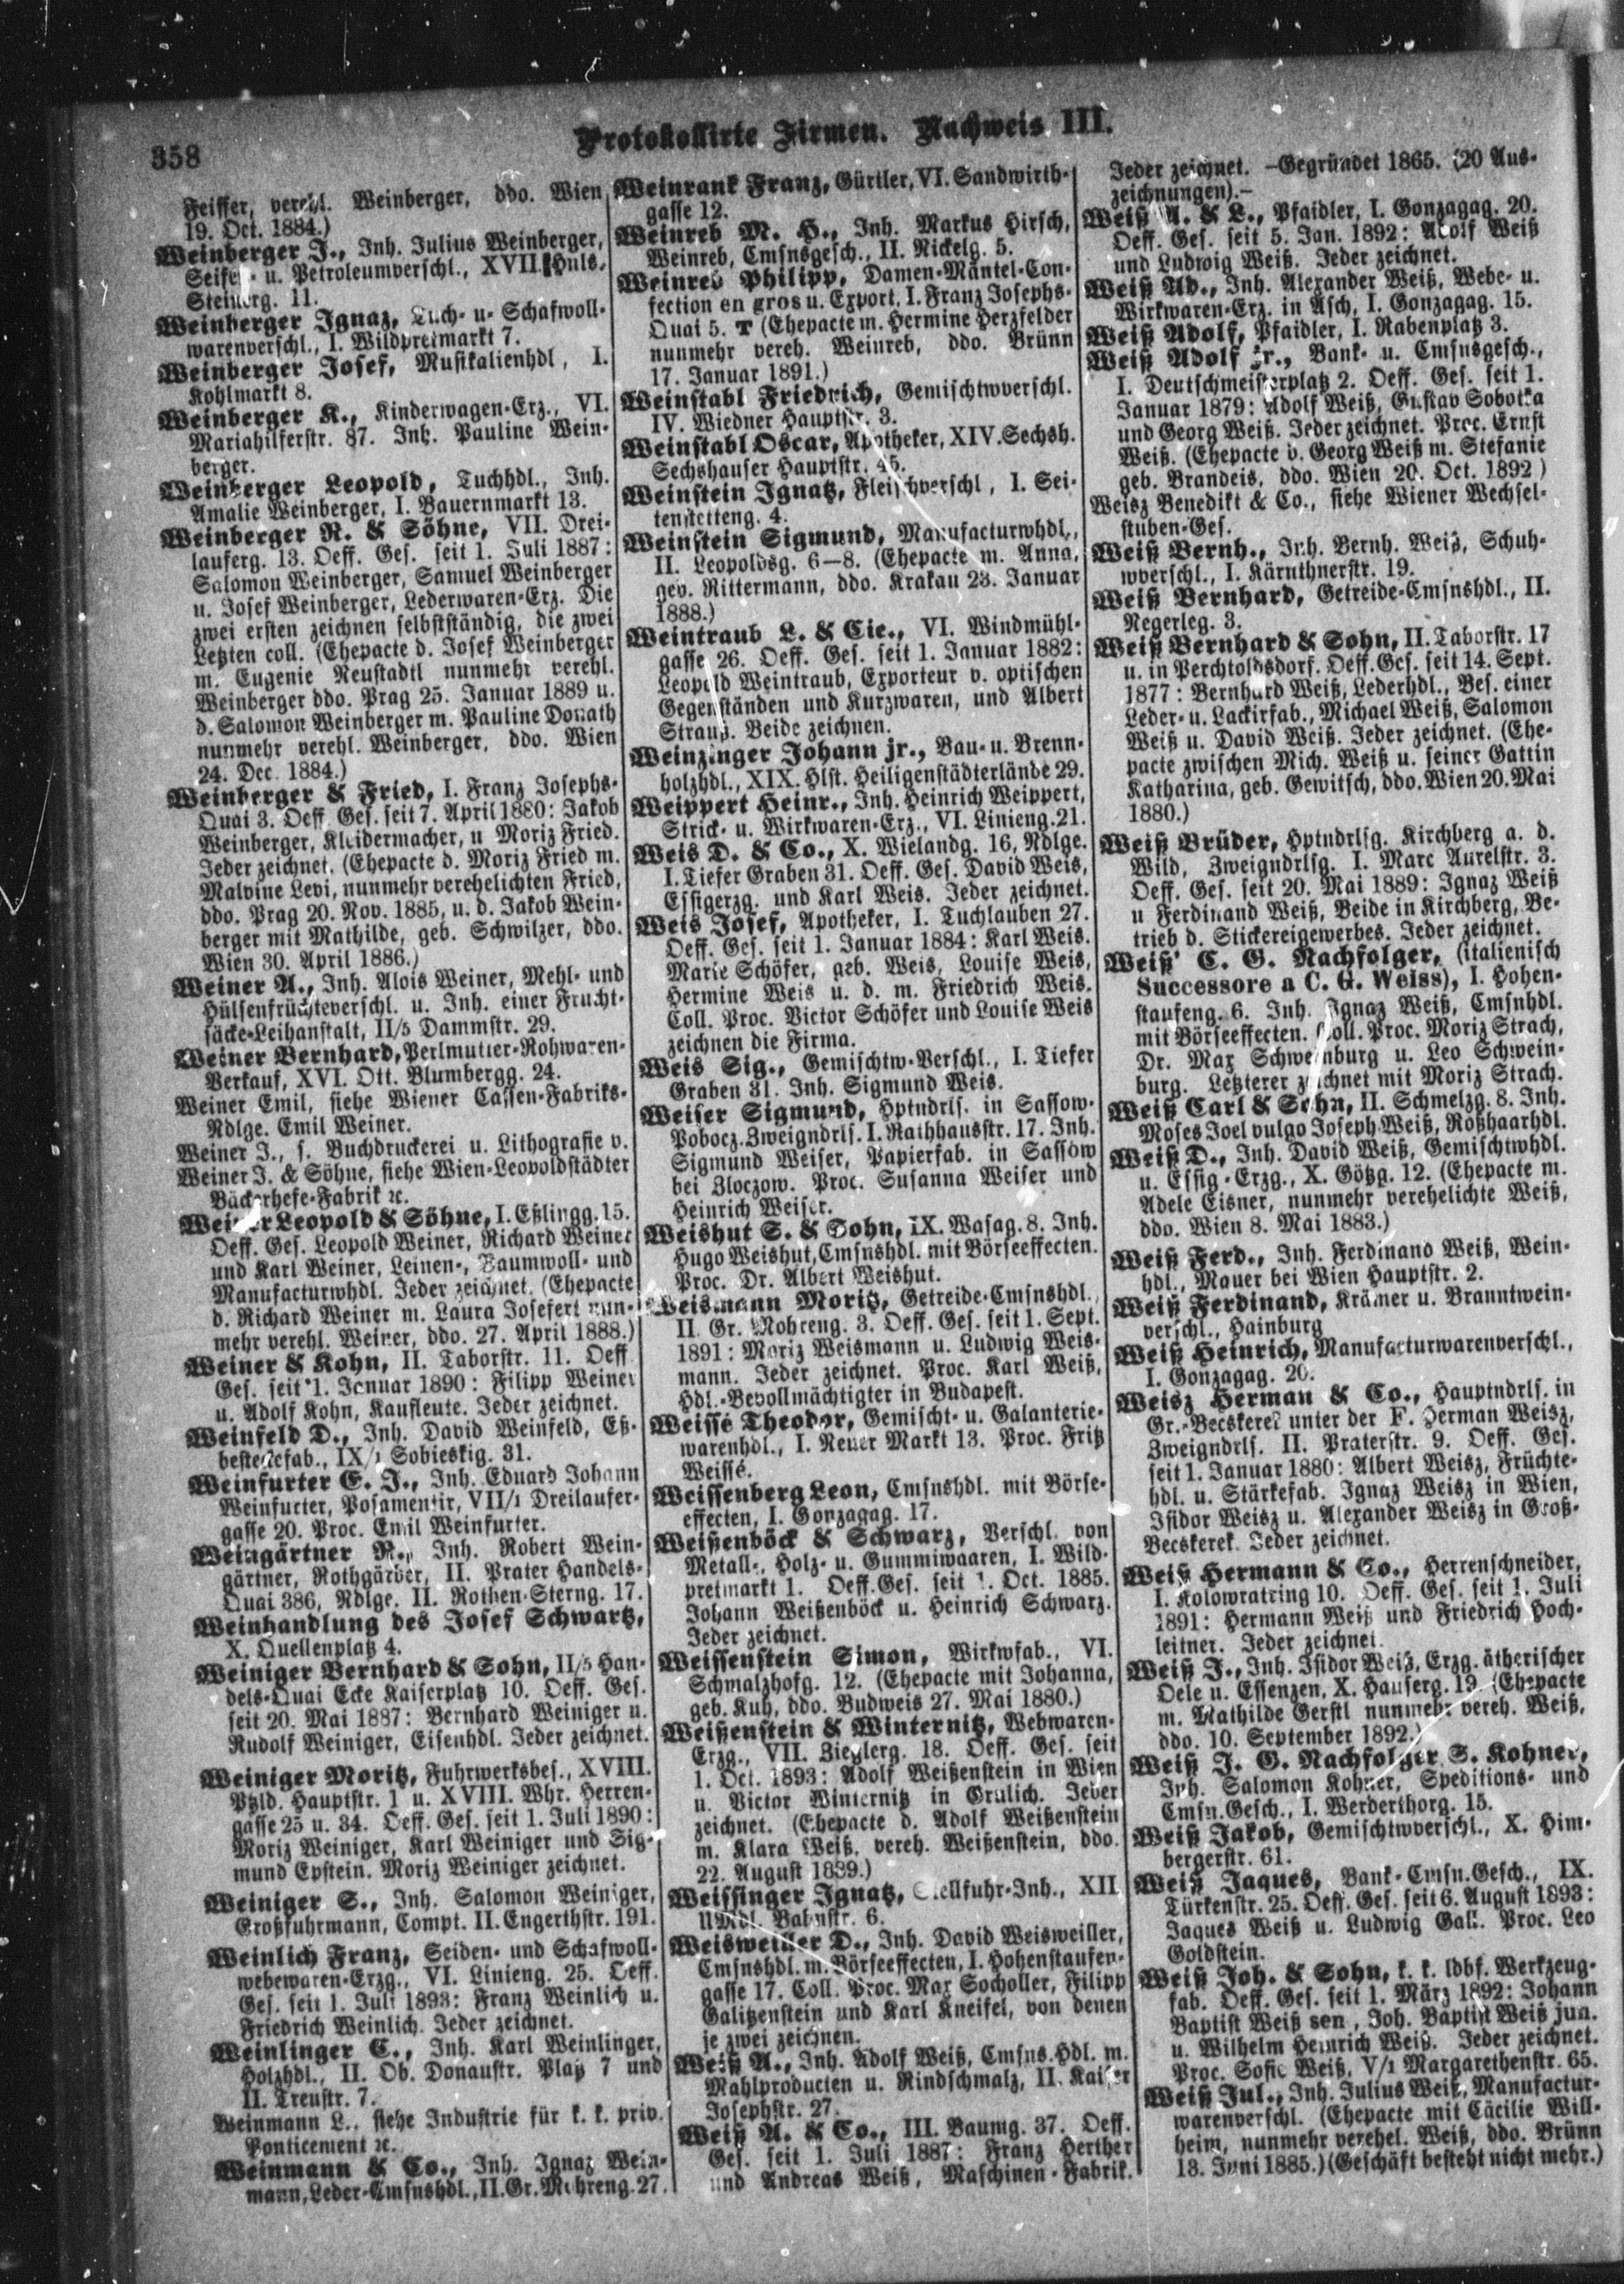 358
Protokollirte Firmen. Nachweis III.
Feiffer, verehl. Weinberger, ddo. Wien
19. Oct. 1884.)
Weinberger J., Inh. Julius Weinberger,
Seifen- u. Petroleumverschl., XVII Huls-
Steinerg. 11.
Weinberger Ignaz, Tuch- u- Schafwoll-
warenverschl., I. Wildpretmarkt 7.
Weinberger Josef, Musikalienhdl, I.
Kohlmarkt 8.
Weinberger K., Kinderwagen-Erz., VI.
Mariahilferstr. 87. Inh. Pauline Wein-
berger.
Weinberger Leopold, Tuchhdl., Inh.
Amalie Weinberger, I. Bauernmarkt 13.
Weinberger R. & Söhne, VII. Drei-
lauferg. 13. Oeff. Ges. seit 1. Juli 1887:
Salomon Weinberger, Samuel Weinberger
u. Josef Weinberger, Lederwaren-Erz. Die
zwei ersten zeichnen selbstständig, die zwei
Letzten coll. (Ehepacte d. Josef Weinberger
m. Eugenie Neustadtl nunmehr verehl.
Weinberger ddo. Prag 25. Januar 1889 u.
d. Salomon Weinberger m. Pauline Donath
nunmehr verehl. Weinberger, ddo. Wien
24. Dec. 1884.)
Weinberger & Fried, I. Franz Josephs-
Quai 3. Oeff. Ges. seit 7. April 1880: Jakob
Weinberger, Kleidermacher, u Moriz Fried.
Jeder zeichnet. (Ehepacte d. Moriz Fried m.
Malvine Levi, nunmehr verehelichten Fried,
ddo. Prag 20. Nov. 1885, u. d. Jakob Wein-
berger mit Mathilde, geb. Schwilzer, ddo.
Wien 30. April 1886.)
Weiner A., Inh. Alois Weiner, Mehl- und
Hülsenfrüchteverschl. u. Inh. einer Frucht-
säcke-Leihanstalt, II/5 Dammstr. 29.
Weiner Bernhard, Perlmutter-Rohwaren-
Verkauf, XVI. Ott. Blumbergg. 24.
Weiner Emil, siehe Wiener Cassen-Fabriks-
Ndlge. Emil Weiner.
Weiner J., s. Buchdruckerei u. Lithografie v.
Weiner J. & Söhne, siehe Wien-Leopoldstädter
Bäckerhefe-Fabrik ꝛc.
Weiner Leopold & Söhne, I. Eßlingg. 15.
Oeff. Ges. Leopold Weiner, Richard Weiner
und Karl Weiner, Leinen-, Baumwoll- und
Manufacturwhdl. Jeder zeichnet. (Ehepacte
d. Richard Weiner m. Laura Josefert nun-
mehr verehl. Weiner, ddo. 27. April 1888.)
Weiner & Kohn, II. Taborstr. 11. Oeff.
Ges. seit 1. Januar 1890: Filipp Weiner
u. Adolf Kohn, Kaufleute. Jeder zeichnet.
Weinfeld D., Inh. David Weinfeld, Eß-
bestekefab., IX/1 Sobieskig. 31.
Weinfurter E. J., Inh. Eduard Johann
Weinfurter, Posamentir, VII/1 Dreilaufer-
gasse 20. Proc. Emil Weinfurter.
Weingärtner R., Inh. Robert Wein-
gärtner, Rothgärber, II. Prater Handels-
Quai 386, Ndlge. II. Rothen-Sterng. 17.
Weinhandlung des Josef Schwartz,
X. Quellenplatz 4.
Weiniger Bernhard & Sohn, II/5 Han-
dels-Quai Ecke Kaiserplatz 10. Oeff. Ges.
seit 20. Mai 1887: Bernhard Weiniger u.
Rudolf Weiniger, Eisenhdl. Jeder zeichnet.
Weiniger Moritz, Fuhrwerksbes., XVIII.
Ptzld. Hauptstr. 1 u. XVIII. Whr. Herren-
gasse 25 u. 34. Oeff. Ges. seit 1. Juli 1890:
Moriz Weiniger, Karl Weiniger und Sig-
mund Epstein. Moriz Weiniger zeichnet.
Weiniger S., Inh. Salomon Weiniger,
Großfuhrmann, Compt. II. Engerthstr. 191.
Weinlich Franz, Seiden- und Schafwoll-
webewaren-Erzg., VI. Linieng. 25. Oeff.
Ges. seit 1. Juli 1893: Franz Weinlich u.
Friedrich Weinlich. Jeder zeichnet.
Weinlinger C., Inh. Karl Weinlinger,
Holzhdl., II. Ob. Donaustr. Platz 7 und
II. Treustr. 7.
Weinmann L., siehe Industrie für k. k. priv.
Ponticement ꝛc.
Weinmann & Co., Inh. Ignaz Wein-
mann, Leder-Cmsnshdl., II. Gr. Mohreng. 27.
Weinrank Franz, Gürtler, VI. Sandwirth-
gasse 12.
Weinreb M. H., Inh. Markus Hirsch,
Weinreb, Cmsnsgesch., II. Rickelg. 5.
Weinreb Philipp, Damen-Mäntel-Con-
fection en gros u. Export, I. Franz Josephs-
Quai 5. T (Ehepacte m. Hermine Herzfelder
nunmehr vereh. Weinreb, ddo. Brünn
17. Januar 1891.)
Weinstabl Friedrich, Gemischtwverschl.
IV. Wiedner Hauptstr. 3.
Weinstabl Oscar, Apotheker, XIV. Sechsh.
Sechshauser Hauptstr. 45.
Weinstein Ignatz, Fleischverschl, I. Sei-
tenstetteng. 4.
Weinstein Sigmund, Manufacturwhdl.,
II. Leopoldsg. 6—8. (Ehepacte m. Anna,
geb. Rittermann, ddo. Krakau 23. Januar
1888.)
Weintraub L. & Cie., VI. Windmühl-
gasse 26. Oeff. Ges. seit 1. Januar 1882:
Leopold Weintraub, Exporteur v. optischen
Gegenständen und Kurzwaren, und Albert
Strauß. Beide zeichnen.
Weinzinger Johann jr., Bau- u. Brenn-
holzhdl., XIX. Hlst. Heiligenstädterlände 29.
Weippert Heinr., Inh. Heinrich Weippert,
Strick- u. Wirkwaren-Erz., VI. Linieng. 21.
Weis D. & Co., X. Wielandg. 16, Ndlge.
I. Tiefer Graben 31. Oeff. Ges. David Weis,
Essigerzg. und Karl Weis. Jeder zeichnet.
Weis Josef, Apotheker, I. Tuchlauben 27.
Oeff. Ges. seit 1. Januar 1884: Karl Weis.
Marie Schöfer, geb. Weis, Louise Weis,
Hermine Weis u. d. m. Friedrich Weis.
Coll. Proc. Victor Schöfer und Louise Weis
zeichnen die Firma.
Weis Sig., Gemischtw-Verschl., I. Tiefer
Graben 31. Inh. Sigmund Weis.
Weiser Sigmund, Hptndrls. in Sassow-
Pobocz. Zweigndrls. I. Rathhausstr. 17. Inh.
Sigmund Weiser, Papierfab. in Sassow
bei Zloczow. Proc. Susanna Weiser und
Heinrich Weiser.
Weishut S. & Sohn, IX. Wasag. 8. Inh.
Hugo Weishut, Cmsnshdl. mit Börseeffecten.
Proc. Dr. Albert Weishut.
Weismann Moritz, Getreide-Cmsnshdl.,
II. Gr. Mohreng. 3. Oeff. Ges. seit 1. Sept.
1891: Moriz Weismann u. Ludwig Weis-
mann. Jeder zeichnet. Proc. Karl Weiß,
Hdl.-Bevollmächtigter in Budapest.
Weissé Theodor, Gemischt- u. Galanterie-
warenhdl., I. Neuer Markt 13. Proc. Fritz
Weissé.
Weissenberg Leon, Cmsnshdl. mit Börse-
effecten, I. Gonzagag. 17.
Weißenböck & Schwarz, Verschl. von
Metall-, Holz- u. Gummiwaaren, I. Wild-
pretmarkt 1. Oeff. Ges. seit 1. Oct. 1885.
Johann Weißenböck u. Heinrich Schwarz.
Jeder zeichnet.
Weissenstein Simon, Wirkwfab., VI.
Schmalzhofg. 12. (Ehepacte mit Johanna,
geb. Kuh, ddo. Budweis 27. Mai 1880.)
Weißenstein & Winternitz, Webwaren-
Erzg., VII. Zieglerg. 18. Oeff. Ges. seit
1. Oct. 1893: Adolf Weißenstein in Wien
u. Victor Winternitz in Grulich. Jeder
zeichnet. (Ehepacte d. Adolf Weißenstein
m. Klara Weiß, vereh. Weißenstein, ddo.
22. August 1889.)
Weissinger Ignatz, Stellfuhr-Inh., XII
UMdl. Bahnstr. 6.
Weisweiller D., Inh. David Weisweiller,
Cmsnshdl. m. Börseeffecten, I. Hohenstaufen-
gasse 17. Coll. Proc. Max Socholler, Filipp
Galitzenstein und Karl Kneifel, von denen
je zwei zeichnen.
Weiß A., Inh. Adolf Weiß, Cmsns. Hdl. m.
Mahlproducten u. Rindschmalz, II. Kaiser
Josephstr. 27.
Weiß A. & Co., III. Baumg. 37. Oeff.
Ges. seit 1. Juli 1887: Franz Herther
und Andreas Weiß, Maschinen-Fabrik.
Jeder zeichnet. —Gegründet 1865. (20 Aus-
zeichnungen).—
Weiß A. & L., Pfaidler, I. Gonzagag. 20.
Oeff. Ges. seit 5. Jan. 1892: Adolf Weiß
und Ludwig Weiß. Jeder zeichnet.
Weiß Ad., Inh. Alexander Weiß, Webe- u.
Wirkwaren-Erz. in Asch, I. Gonzagag. 15.
Weiß Adolf, Pfaidler, I. Rabenplatz 3.
Weiß Adolf jr., Bank- u. Cmsnsgesch.,
I. Deutschmeisterplatz 2. Oeff. Ges. seit 1.
Januar 1879: Adolf Weiß, Gustav Sobotka
und Georg Weiß. Jeder zeichnet. Proc. Ernst
Weiß. (Ehepacte v. Georg Weiß m. Stefanie
geb. Brandeis, ddo. Wien 20. Oct. 1892)
Weisz Benedikt & Co., siehe Wiener Wechsel-
stuben-Ges.
Weiß Bernh., Inh. Bernh. Weiß, Schuh-
wverschl., I. Kärnthnerstr. 19.
Weiß Bernhard, Getreide-Cmsnshdl., II.
Negerleg. 3.
Weiß Bernhard & Sohn, II. Taborstr. 17
u. in Perchtoldsdorf. Oeff. Ges. seit 14. Sept.
1877: Bernhard Weiß, Lederhdl., Bes. einer
Leder- u. Lackirfab., Michael Weiß, Salomon
Weiß u. David Weiß. Jeder zeichnet. (Ehe-
pacte zwischen Mich. Weiß u. seiner Gattin
Katharina, geb. Gewitsch, ddo. Wien 20. Mai
1880.)
Weiß Brüder, Hptndrlsg. Kirchberg a. d.
Wild, Zweigndrlsg. I. Marc Aurelstr. 3.
Oeff. Ges. seit 20. Mai 1889: Ignaz Weiß
u Ferdinand Weiß, Beide in Kirchberg, Be-
trieb d. Stickereigewerbes. Jeder zeichnet.
Weiß C. G. Nachfolger, (italienisch
Successore a C. G. Weiss), I. Hohen-
staufeng. 6. Inh. Ignaz Weiß, Cmsnhdl.
mit Börseeffecten. Coll. Proc. Moriz Strach,
Dr. Max Schweinburg u. Leo Schwein-
burg. Letzterer zeichnet mit Moriz Strach.
Weiß Carl & Sohn, II. Schmelzg. 8. Inh.
Moses Joel vulgo Joseph Weiß, Roßhaarhdl.
Weiß D., Inh. David Weiß, Gemischtwhdl.
u. Essig-Erzg., X. Götzg. 12. (Ehepacte m.
Adele Eisner, nunmehr verehelichte Weiß,
ddo. Wien 8. Mai 1883.)
Weiß Ferd., Inh. Ferdinand Weiß, Wein-
hdl., Mauer bei Wien Hauptstr. 2.
Weiß Ferdinand, Krämer u. Branntwein-
verschl., Hainburg
Weiß Heinrich, Manufacturwarenverschl.,
I. Gonzagag. 20.
Weisz Herman & Co., Hauptndrls. in
Gr.-Becskerek unter der F. Herman Weisz,
Zweigndrls. II. Praterstr. 9. Oeff. Ges.
seit 1. Januar 1880: Albert Weisz, Früchte-
hdl. u. Stärkefab. Ignaz Weisz in Wien,
Isidor Weisz u. Alexander Weisz in Groß-
Becskerek. Jeder zeichnet.
Weiß Hermann & Co., Herrenschneider,
I. Kolowratring 10. Oeff. Ges. seit 1. Juli
1891: Hermann Weiß und Friedrich Hoch-
leitner. Jeder zeichnet.
Weiß J., Inh. Isidor Weiß, Erzg. ätherischer
Oele u. Essenzen, X. Hauserg. 19. (Ehepacte
m. Mathilde Gerstl nunmehr vereh. Weiß,
ddo. 10. September 1892.)
Weiß J. G. Nachfolger S. Kohner,
Inh. Salomon Kohner, Speditions- und
Cmsn. Gesch., I. Werderthorg. 15.
Weiß Jakob, Gemischtwverschl., X. Him-
bergerstr. 61.
Weiß Jaques, Bank-Cmsn. Gesch., IX.
Türkenstr. 25. Oeff. Ges. seit 6. August 1893:
Jaques Weiß u. Ludwig Gall. Proc. Leo
Goldstein.
Weiß Joh. & Sohn, k. k. ldbf. Werkzeug-
fab. Oeff. Ges. seit 1. März 1892: Johann
Baptist Weiß sen, Joh. Baptist Weiß jun.
u. Wilhelm Heinrich Weiß. Jeder zeichnet.
Proc. Sofie Weiß, V/1 Margarethenstr. 65.
Weiß Jul., Inh. Julius Weiß, Manufactur-
warenverschl. (Ehepacte mit Cäcilie Will-
heim, nunmehr verehel. Weiß, ddo. Brünn
13. Juni 1885.) (Geschäft besteht nicht mehr.)